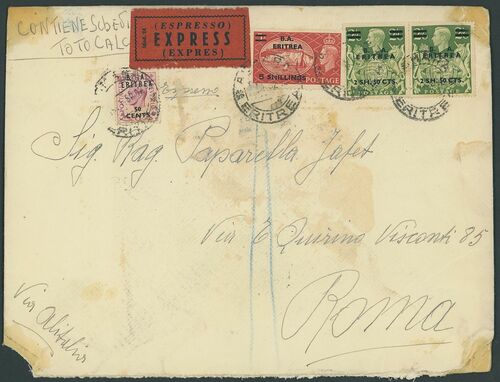 CONTIENE SCHEDE
TOTOCALC
(ESPRESSO)
EXPRESS
(EXPRES)
B.A.
ERITREA
5 SHILLINGS
POSTAGE
B.A.
ERITREA
2 SH. 50 CTS.
POSTAGE
B.A.
ERITREA
2 SH. 50 CTS.
POSTAGE
B.A.
ERITREA
50
CENTS
ERITREA
ERITREA
Espresso
Sig. Rag. Paparella Jafet
Via E. Quirino Visconti 85
Roma
Via Alitalia